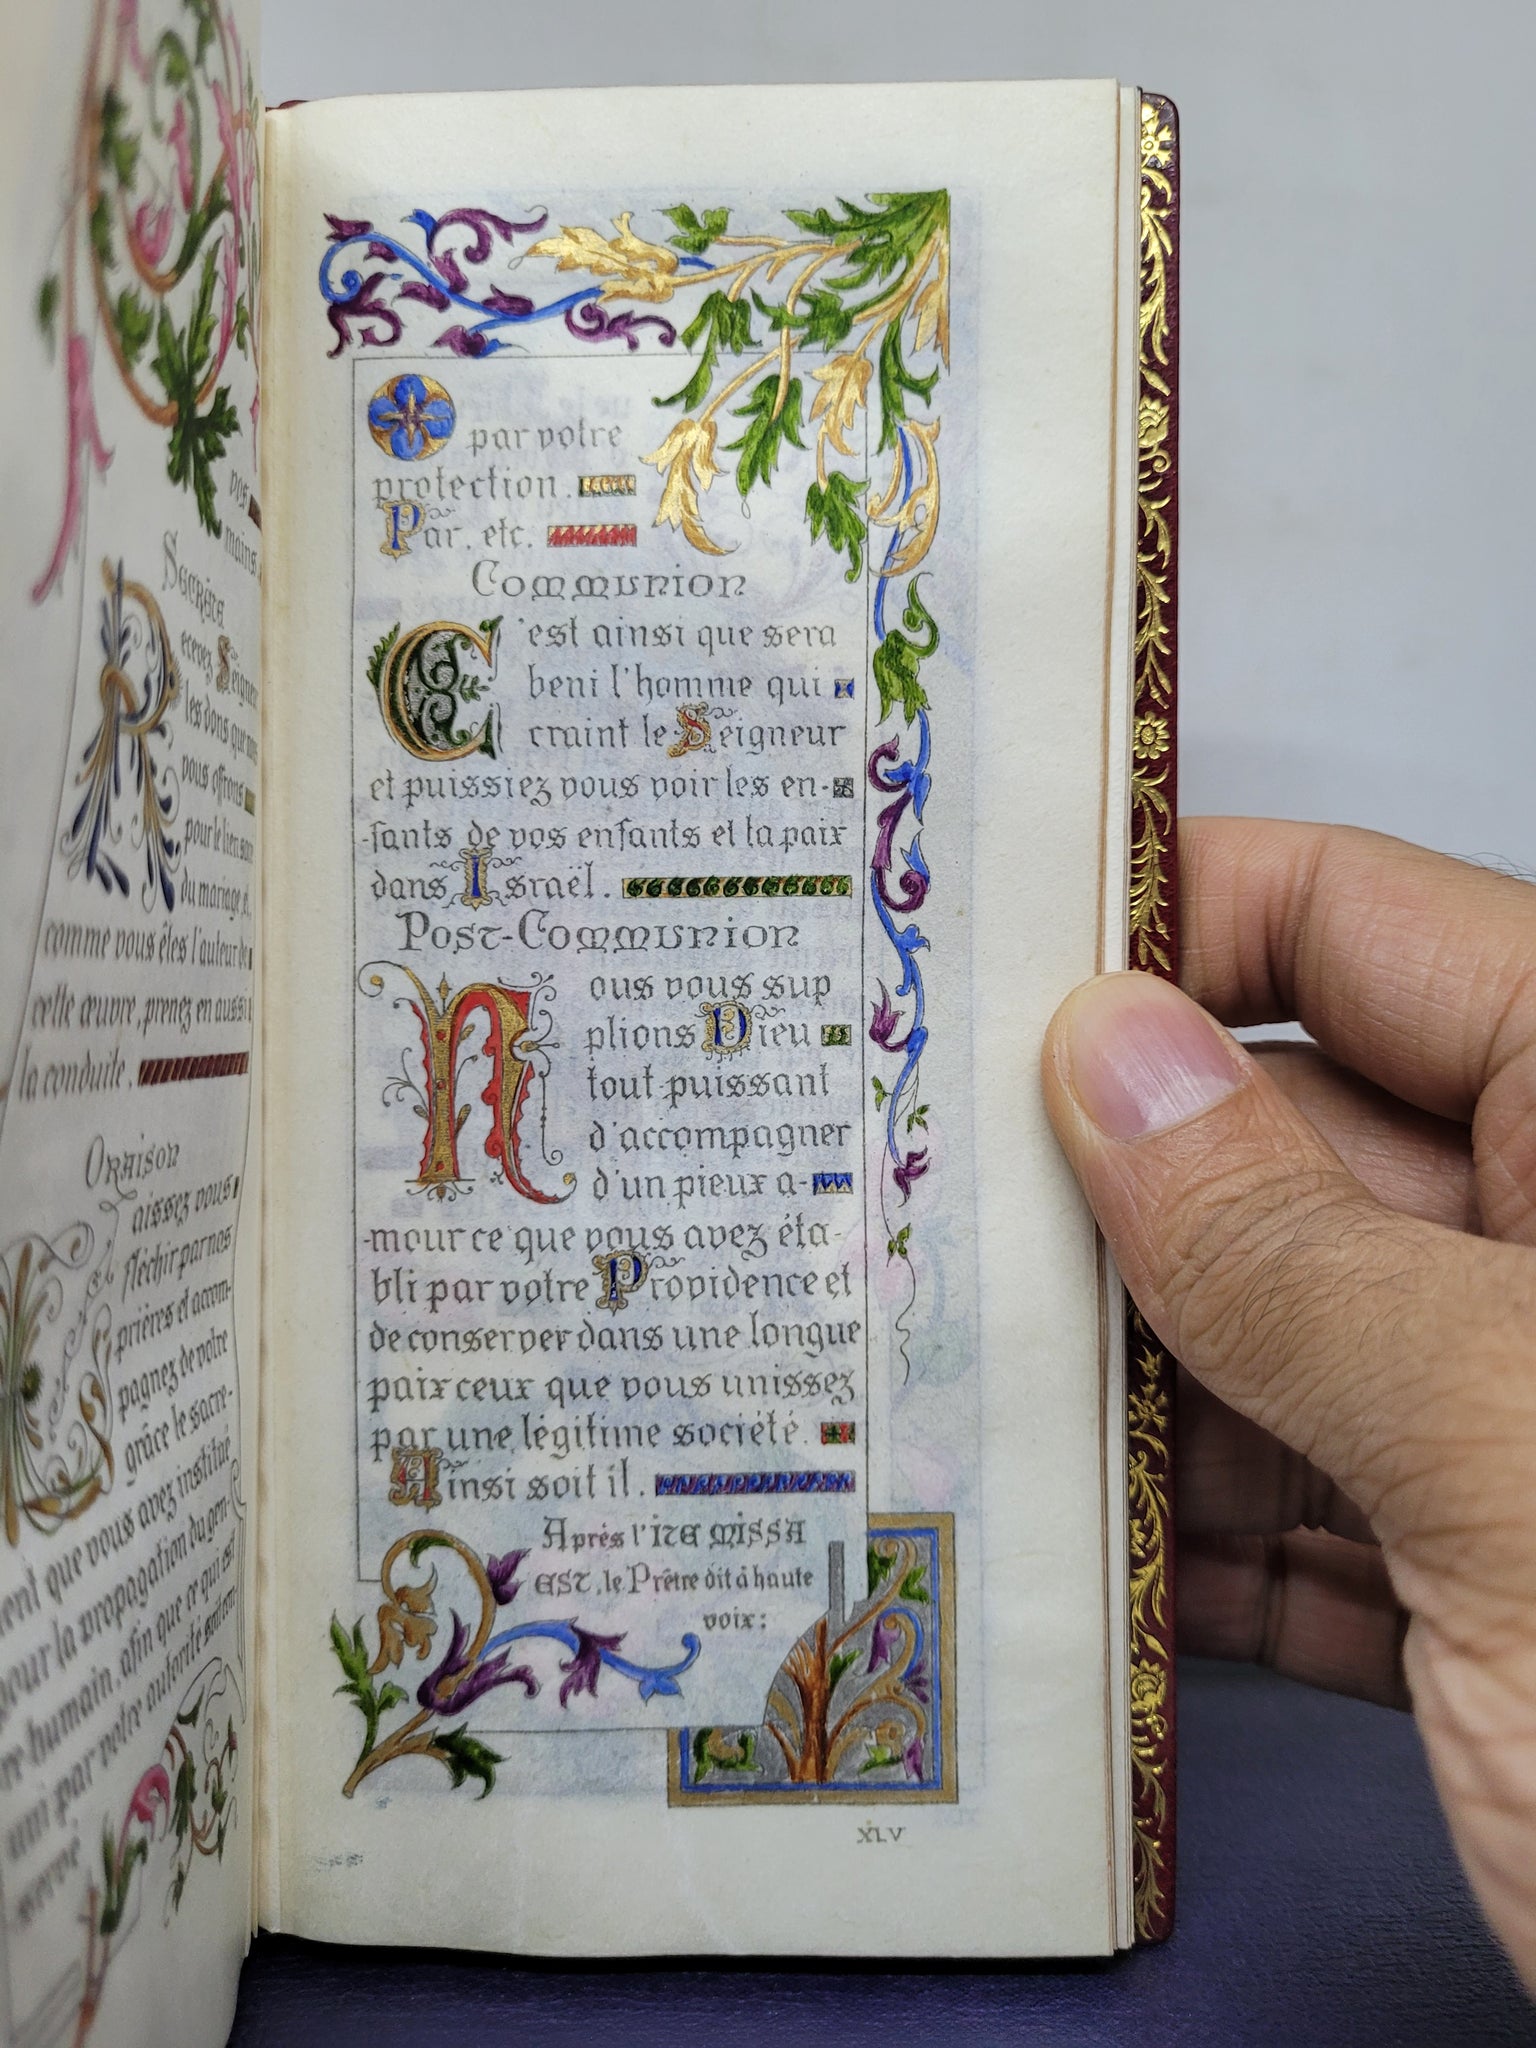 vos
mains.
Secrète
Recevez Seigneur
les dons que nous
vous offrons
pour le lien sacré
du mariage, et,
comme vous êtes l'auteur de
cette œuvre, prenez en aussi
la conduite.
Oraison
Laissez vous
fléchir par nos
prières et accom-
pagnez de votre
grâce le sacre-
ment que vous avez institué
pour la propagation du gen-
re humain, afin que ce qui est
uni par votre autorité soit con-
servé
par votre
protection.
Par. etc.
Communion
C'est ainsi que sera
beni l'homme qui
craint le Seigneur
et puissiez vous voir les en-
-fants de vos enfants et la paix
dans Israël.
Post-Communion
Nous vous sup
plions Dieu
tout puissant
d'accompagner
d'un pieux a-
-mour ce que vous avez éta-
bli par votre Providence et
de conserver dans une longue
paix ceux que vous unissez
par une légitime société.
Ainsi soit il.
Après l'ite missa
est, le Prêtre dit à haute
voix:
XLV